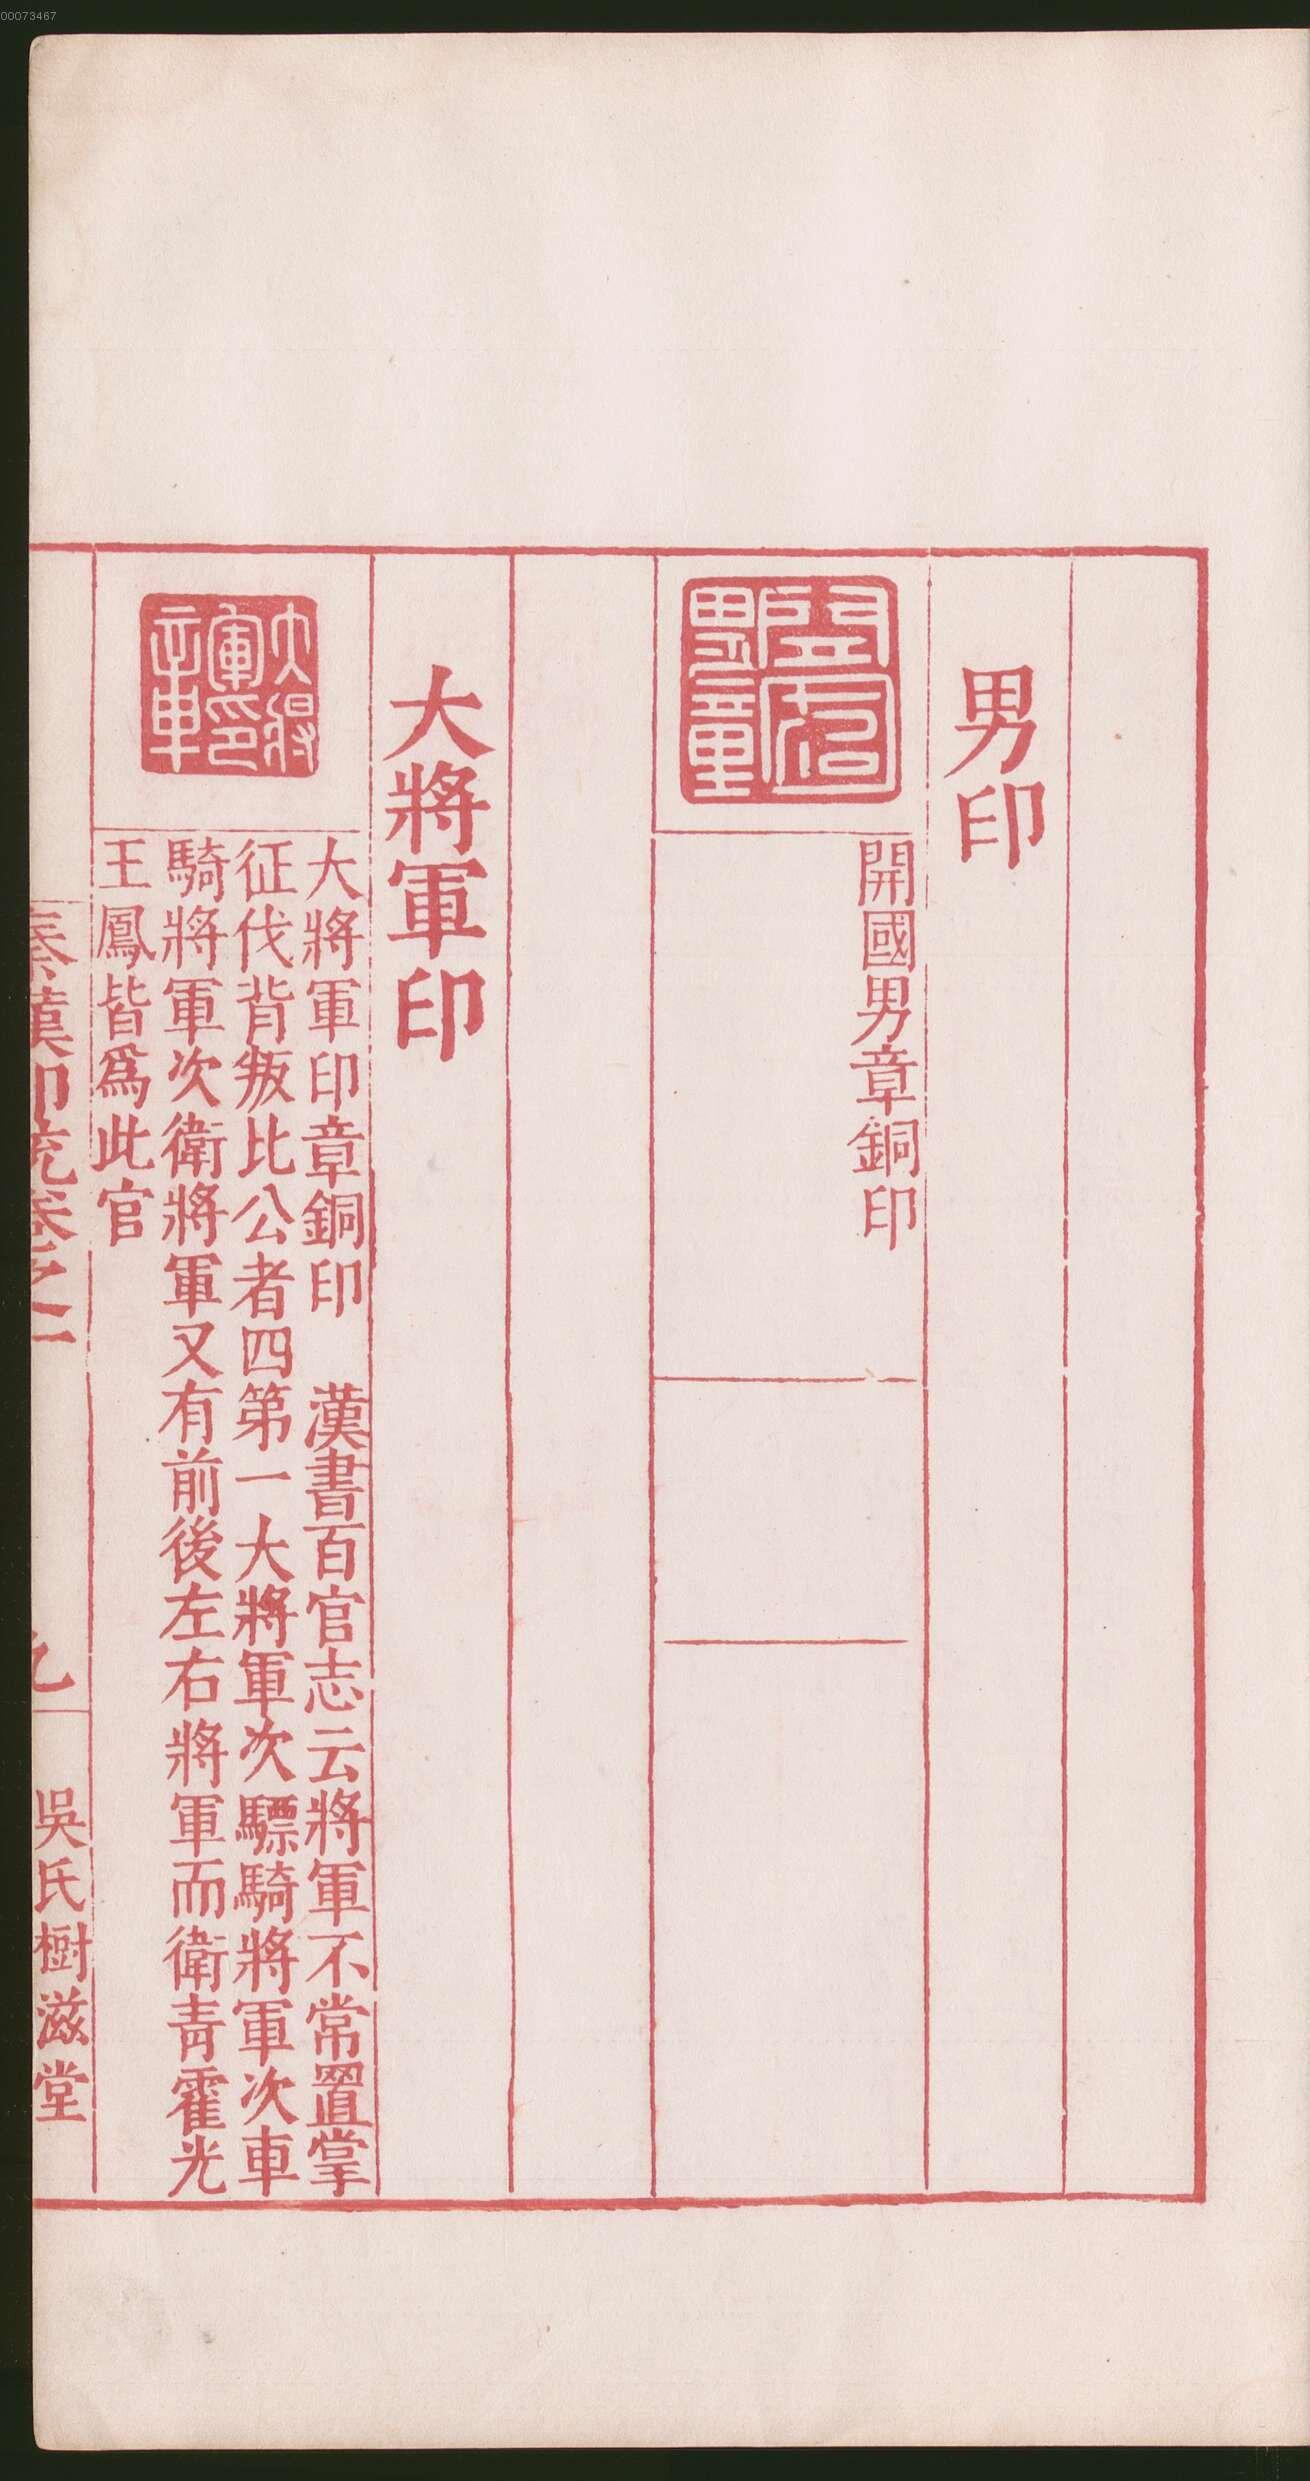 00073467
男印
開國男章
開國男章銅印
大將軍印
大將軍印章
大將軍印章銅印　漢書百官志云將軍不常置掌
征伐背叛比公者四第一大將軍次驃騎將軍次車
騎將軍次衛將軍又有前後左右將軍而衛青霍光
王鳳皆爲此官
秦漢印統卷之一
九
吳氏樹滋堂